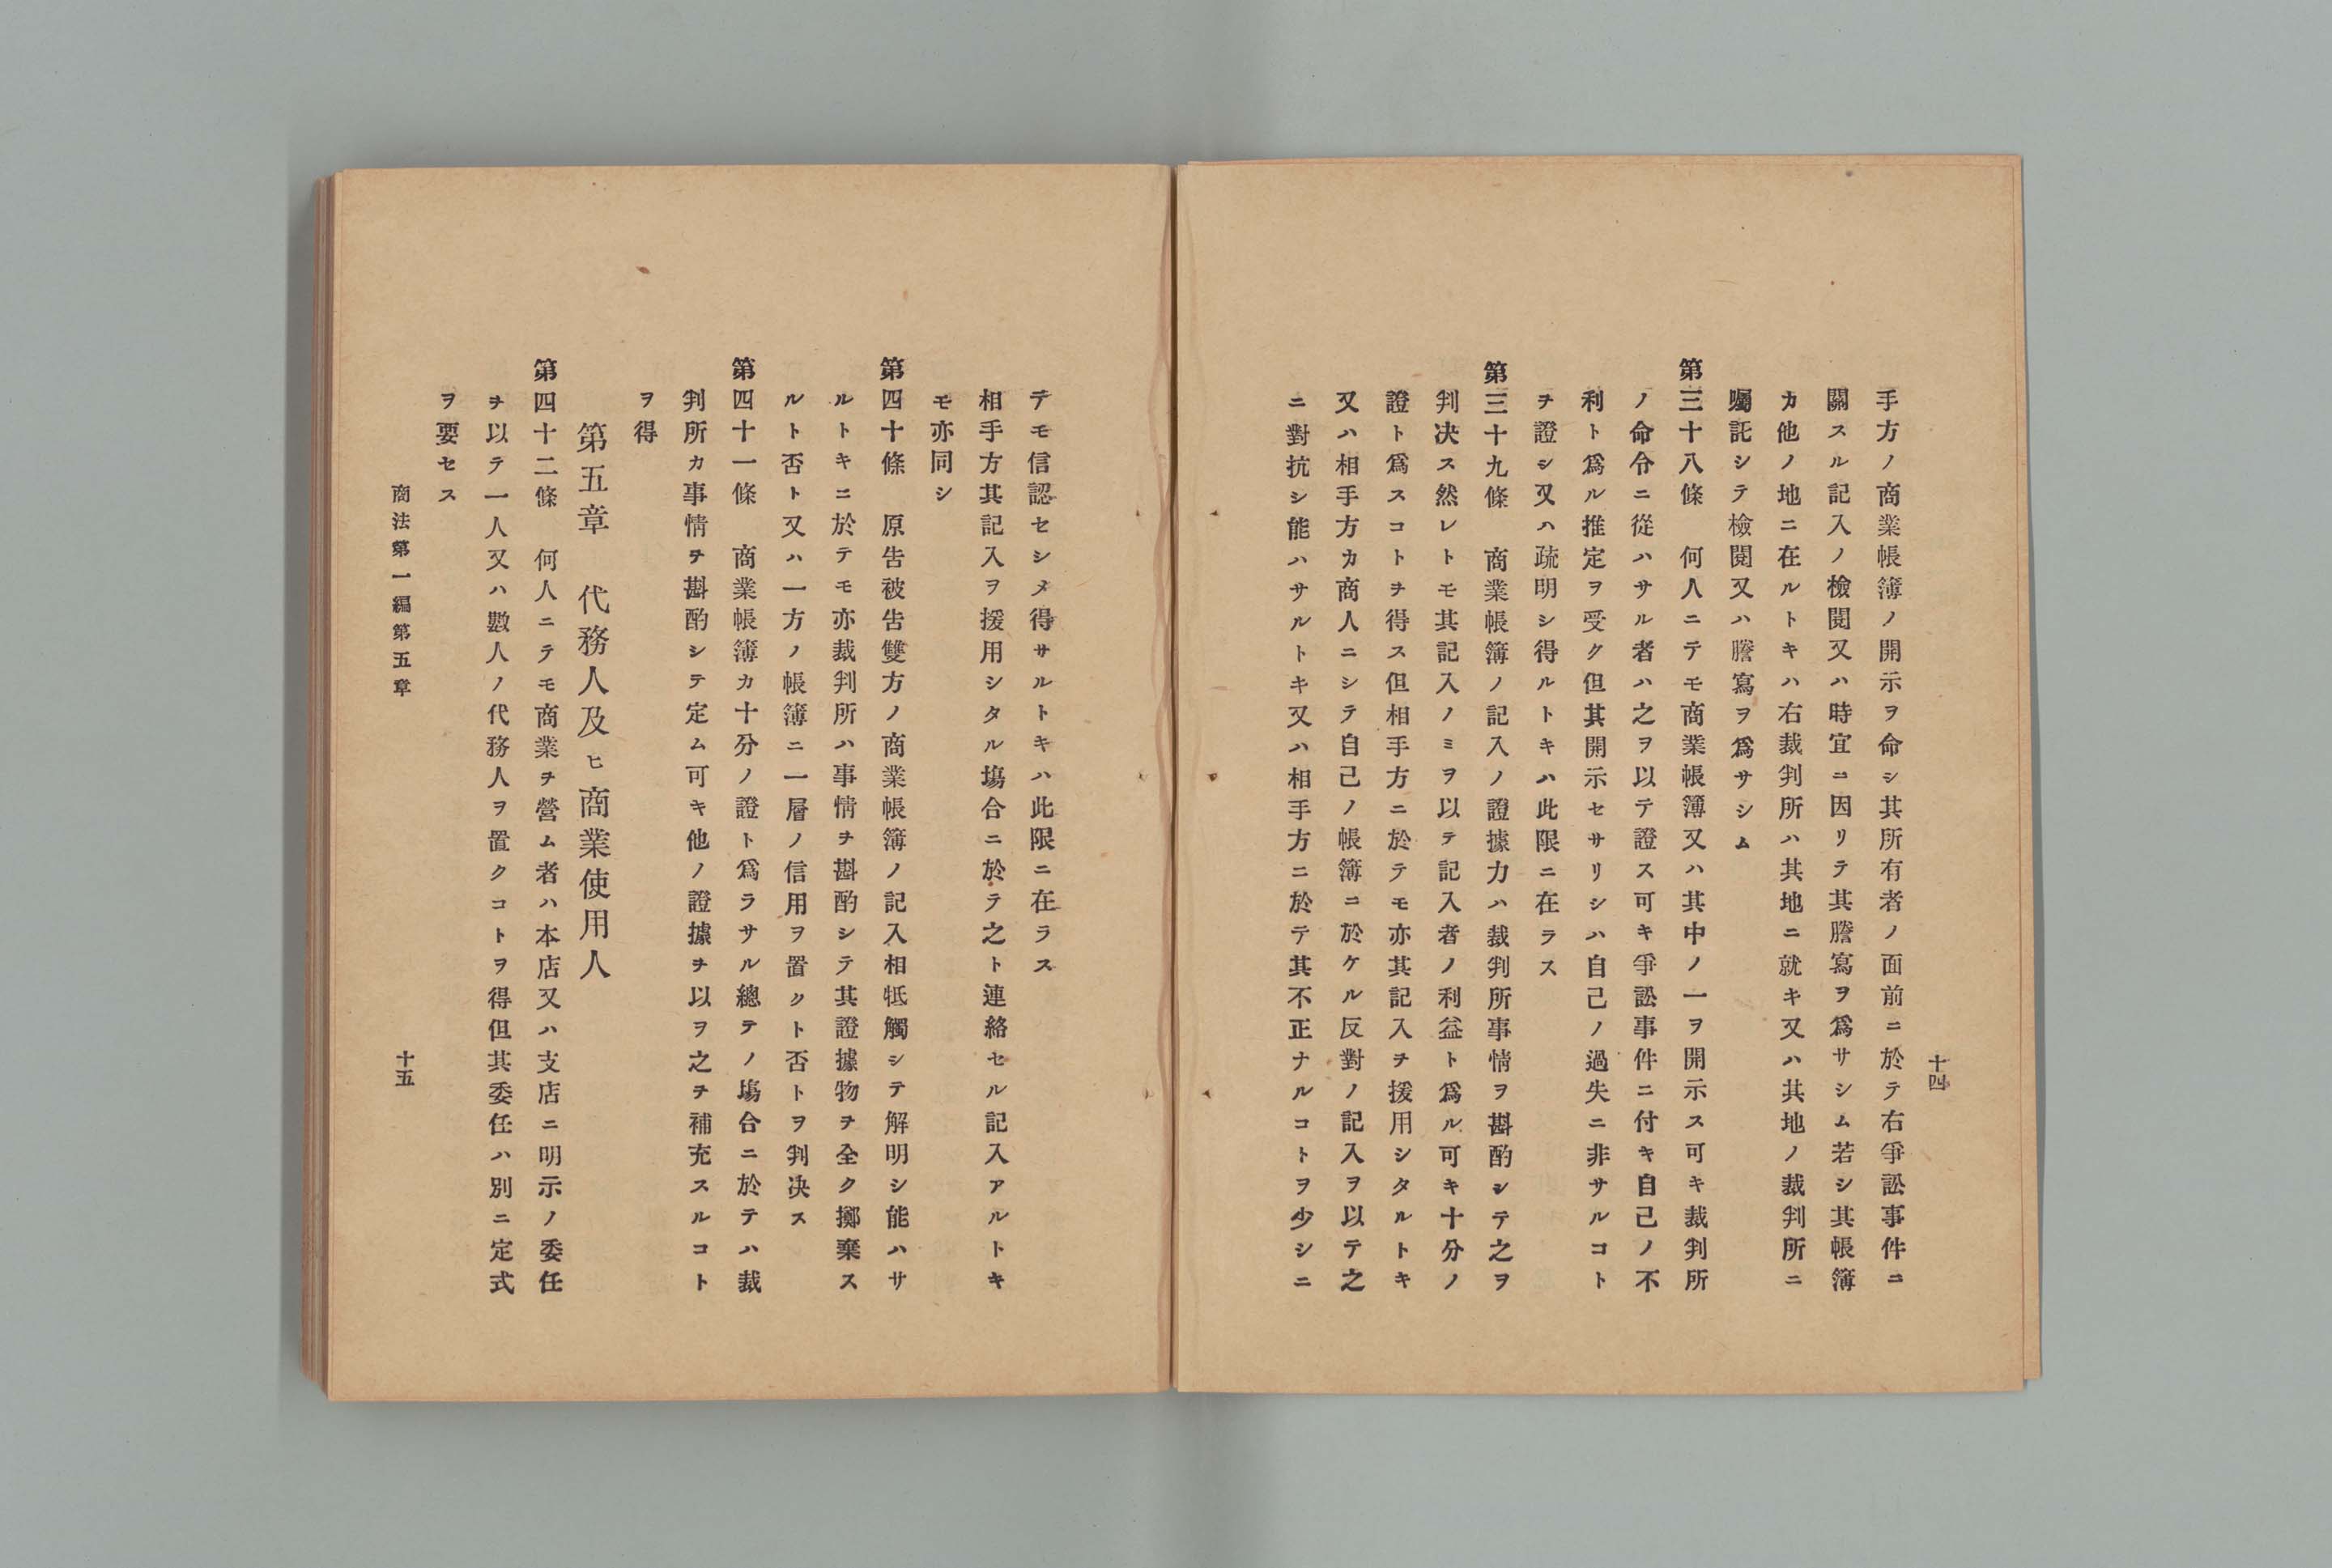 十四
手方ノ商業帳簿ノ開示ヲ命シ其所有者ノ面前ニ於テ右爭訟事件ニ
關スル記入ノ檢閱又ハ時宜ニ因リテ其謄寫ヲ爲サシム若シ其帳簿
カ他ノ地ニ在ルトキハ右裁判所ハ其地ニ就キ又ハ其地ノ裁判所ニ
囑託シテ檢閱又ハ謄寫ヲ爲サシム
第三十八條　何人ニテモ商業帳簿又ハ其中ノ一ヲ開示ス可キ裁判所
ノ命令ニ從ハサル者ハ之ヲ以テ證ス可キ爭訟事件ニ付キ自己ノ不
利ト爲ル推定ヲ受ク但其開示セサリシハ自己ノ過失ニ非サルコト
ヲ證シ又ハ疏明シ得ルトキハ此限ニ在ラス
第三十九條　商業帳簿ノ記入ノ證據力ハ裁判所事情ヲ斟酌シテ之ヲ
判决ス然レトモ其記入ノミヲ以テ記入者ノ利益ト爲ル可キ十分ノ
證ト爲スコトヲ得ス但相手方ニ於テモ亦其記入ヲ援用シタルトキ
又ハ相手方カ商人ニシテ自己ノ帳簿ニ於ケル反對ノ記入ヲ以テ之
ニ對抗シ能ハサルトキ又ハ相手方ニ於テ其不正ナルコトヲ少シニ
テモ信認セシメ得サルトキハ此限ニ在ラス
相手方其記入ヲ援用シタル塲合ニ於テ之ト連絡セル記入アルトキ
モ亦同シ
第四十條　原告被告雙方ノ商業帳簿ノ記入相牴觸シテ解明シ能ハサ
ルトキニ於テモ亦裁判所ハ事情ヲ斟酌シテ其證據物ヲ全ク擲棄ス
ルト否ト又ハ一方ノ帳簿ニ一層ノ信用ヲ置クト否トヲ判决ス
第四十一條　商業帳簿カ十分ノ證ト爲ラサル總テノ塲合ニ於テハ裁
判所カ事情ヲ斟酌シテ定ム可キ他ノ證據ヲ以ヲ之ヲ補充スルコト
ヲ得
第五章　代務人及ヒ商業使用人
第四十二條　何人ニテモ商業ヲ營ム者ハ本店又ハ支店ニ明示ノ委任
ヲ以テ一人又ハ數人ノ代務人ヲ置クコトヲ得但其委任ハ別ニ定式
ヲ要セス
商法第一編第五章
十五